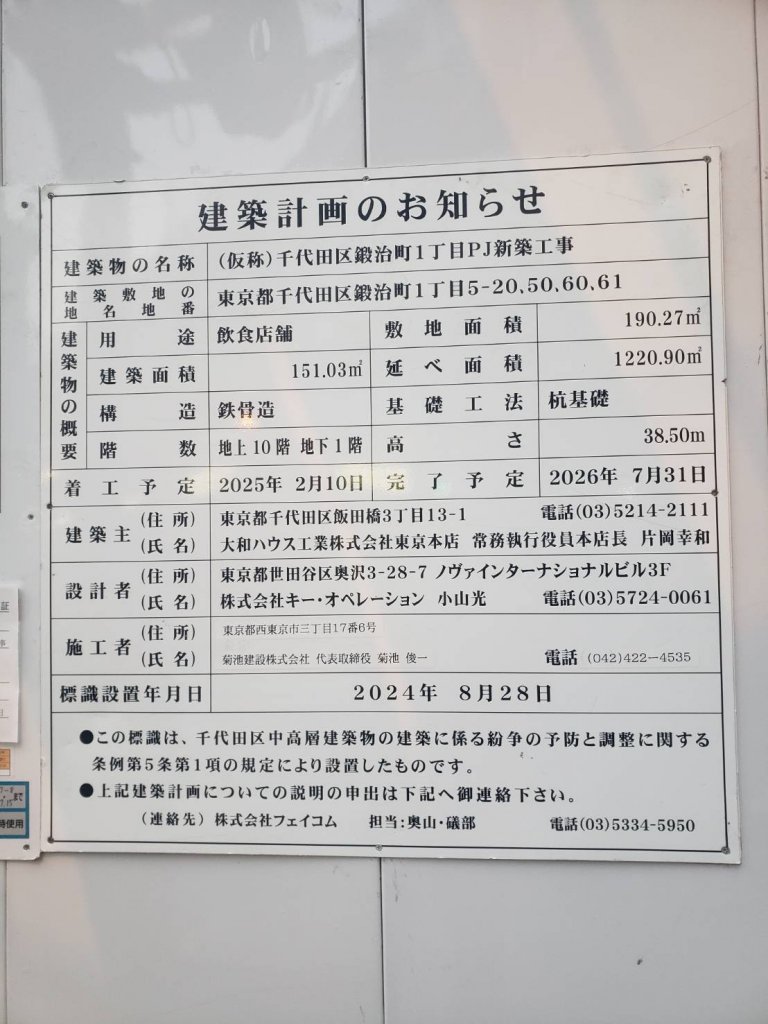 建築計画のお知らせ
建築物の名称 (仮称)千代田区鍛治町1丁目PJ新築工事
建築敷地の地名地番 東京都千代田区鍛治町1丁目5-20,50,60,61
建築物の概要
用途 飲食店舗 敷地面積 190.27㎡
建築面積 151.03㎡ 延べ面積 1220.90㎡
構造 鉄骨造 基礎工法 杭基礎
階数 地上10階 地下1階 高さ 38.50m
着工予定 2025年 2月10日 完了予定 2026年 7月31日
建築主 (住所) 東京都千代田区飯田橋3丁目13-1 電話(03)5214-2111
(氏名) 大和ハウス工業株式会社東京本店 常務執行役員本店長 片岡幸和
設計者 (住所) 東京都世田谷区奥沢3-28-7 ノヴァインターナショナルビル3F
(氏名) 株式会社キー・オペレーション 小山光 電話(03)5724-0061
施工者 (住所) 東京都西東京市三丁目17番6号
(氏名) 菊池建設株式会社 代表取締役 菊池 俊一 電話 (042)422-4535
標識設置年月日 2024年 8月28日
●この標識は、千代田区中高層建築物の建築に係る紛争の予防と調整に関する
条例第5条第1項の規定により設置したものです。
●上記建築計画についての説明の申出は下記へ御連絡下さい。
(連絡先) 株式会社フェイコム 担当:奥山・礒部 電話(03)5334-5950
証
まで
時使用